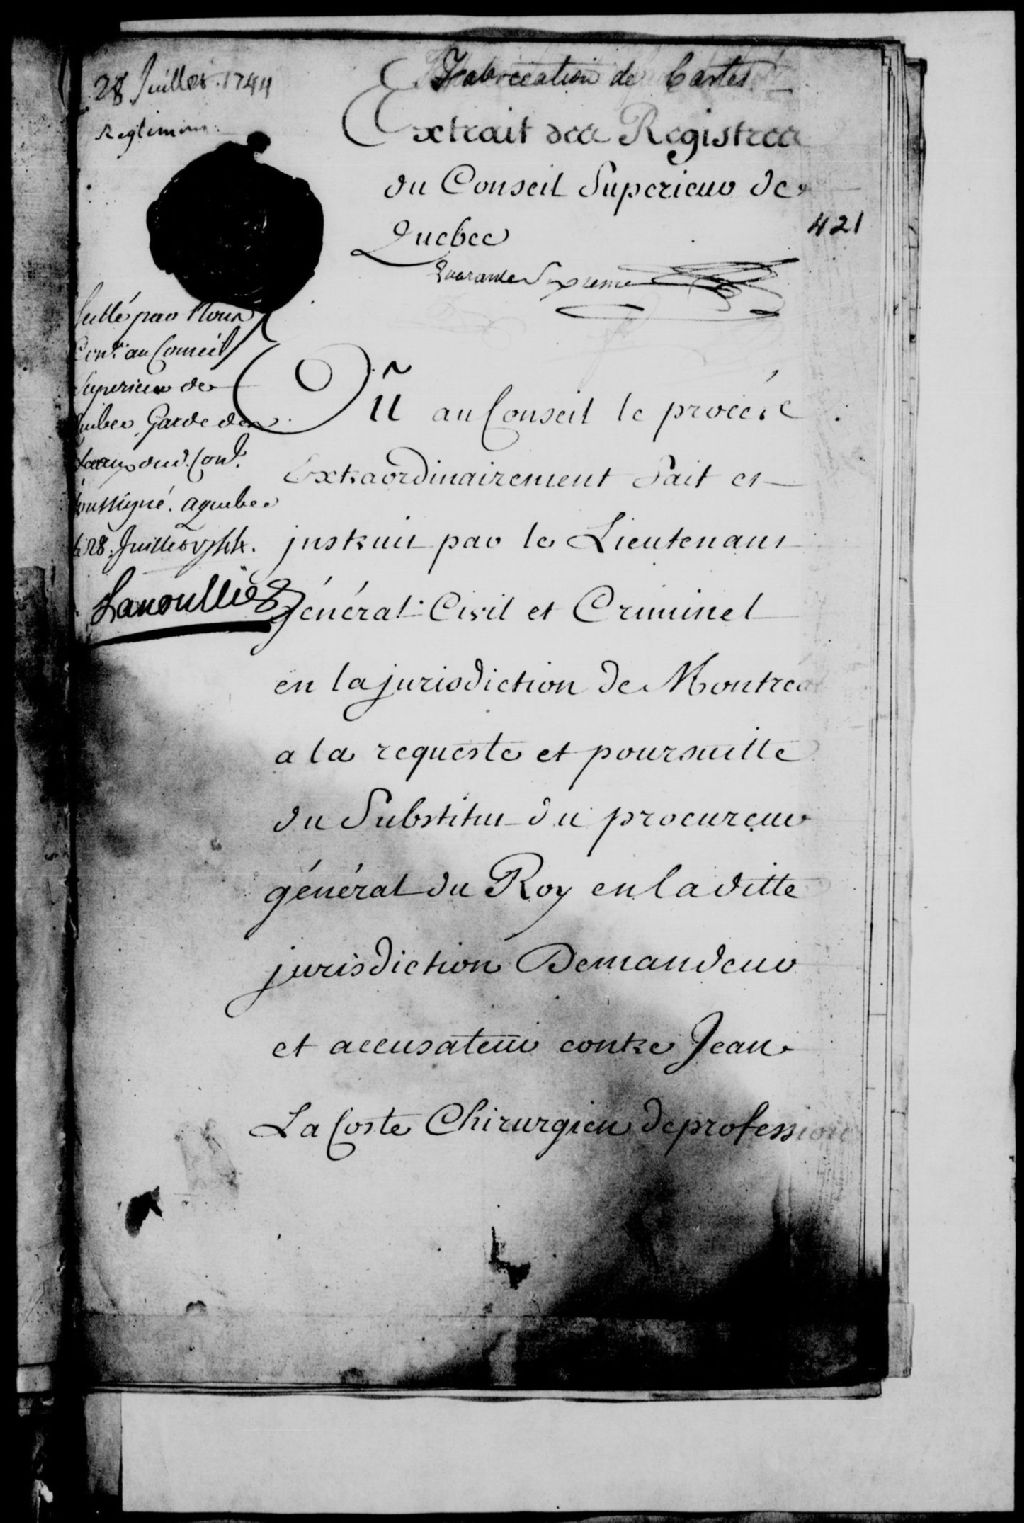 28 Juillet 1744
Fabrication de Cartes
Extrait des Registres
du Conseil Superieur de
Quebec
421
Quarante Sixieme
Scellé par Nous
Con.er au Conseil
Superieur de
Quebec Garde des
Sceaux dud. Con.el
Soussigné. a quebec
le 28. Juillet 1744.
Lanoullier
Vû au Conseil le procés
Extraordinairement fait et
instruit par le Lieutenant
général Civil et Criminel
en la jurisdiction de Montréal
a la requeste et poursuitte
du Substitut du procureur
général du Roy en la ditte
jurisdiction Demandeur
et accusateur contre Jean
La Coste Chirurgien de profession